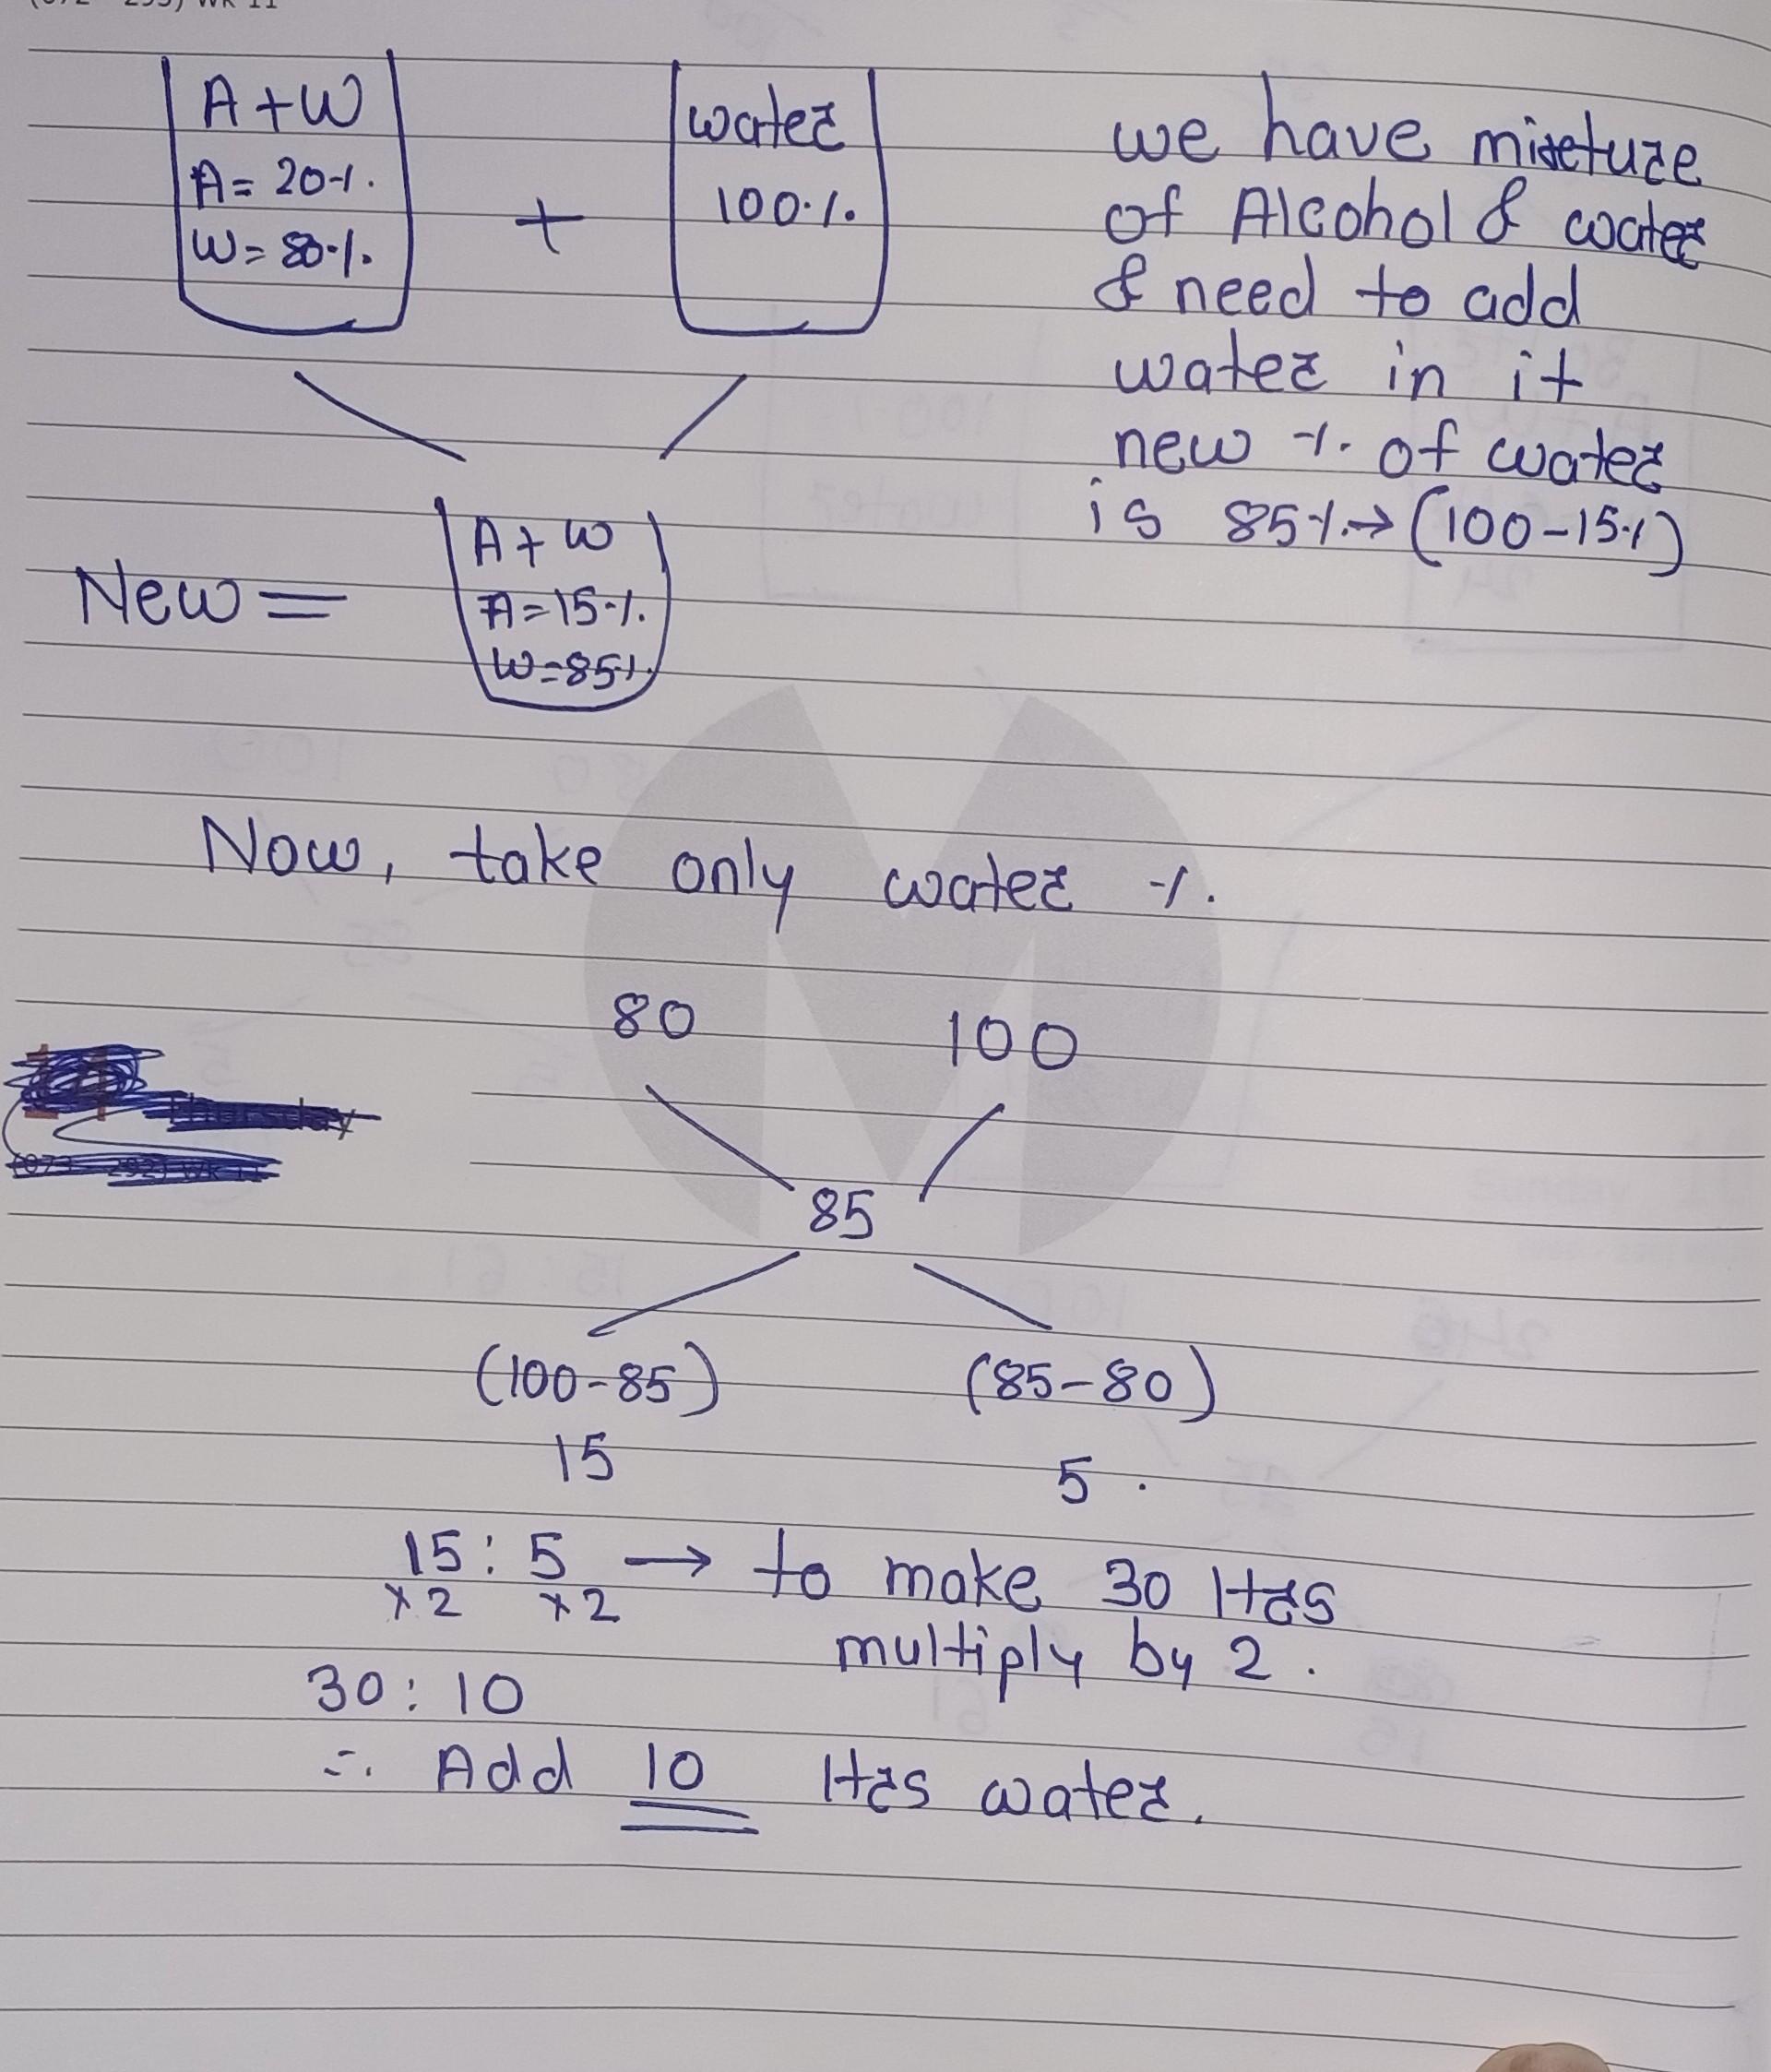 A+W
A= 20%.
W= 80%.
+
water
100%.
we have mixture
of Alcohol & water
& need to add
water in it
new %. of water
is 85%.→(100-15%)
New =
A+W
A=15%.
W=85%.
Now, take only water %.
80 100
85
(100-85) (85-80)
15 5.
15:5 → to make 30 ltrs
×2 ×2 multiply by 2.
30:10
∴ Add 10 ltrs water.